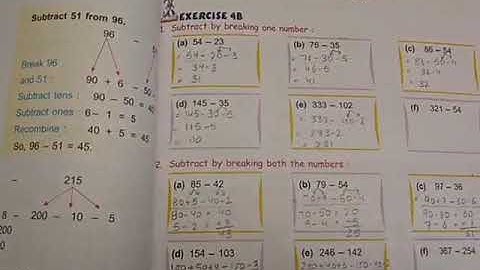 Subtract 51 from 96.
96
Break 96
and 51 :
90 + 6 - 50
Subtract tens : 90 - 50 = 40
Subtract ones : 6 - 1 = 5
Recombine : 40 + 5 = 45
So, 96 - 51 = 45.
215
8 - 200 - 10 - 5
EXERCISE 4B
1. Subtract by breaking one number :
(a) 54 - 23
= 54-20-3
= 34-3
= 31
(b) 76 - 35
= 76-30-5
= 46-5
= 41
(c) 86 - 54
= 86-50-4
= 36-4
= 32
(d) 145 - 35
= 145-30-5
= 115-5
= 110
(e) 333 - 102
= 333-100-2
= 233-2
= 231
(f) 321 - 54
2. Subtract by breaking both the numbers :
(a) 65 - 42
80-40=40
5-2=3
(b) 79 - 54
70+9-50-4
70-50=20
9-4=5
25
(c) 97 - 36
90+7-30-6
90-30=60
7-6=1
(d) 154 - 103
(e) 246 - 142
(f) 367 - 254